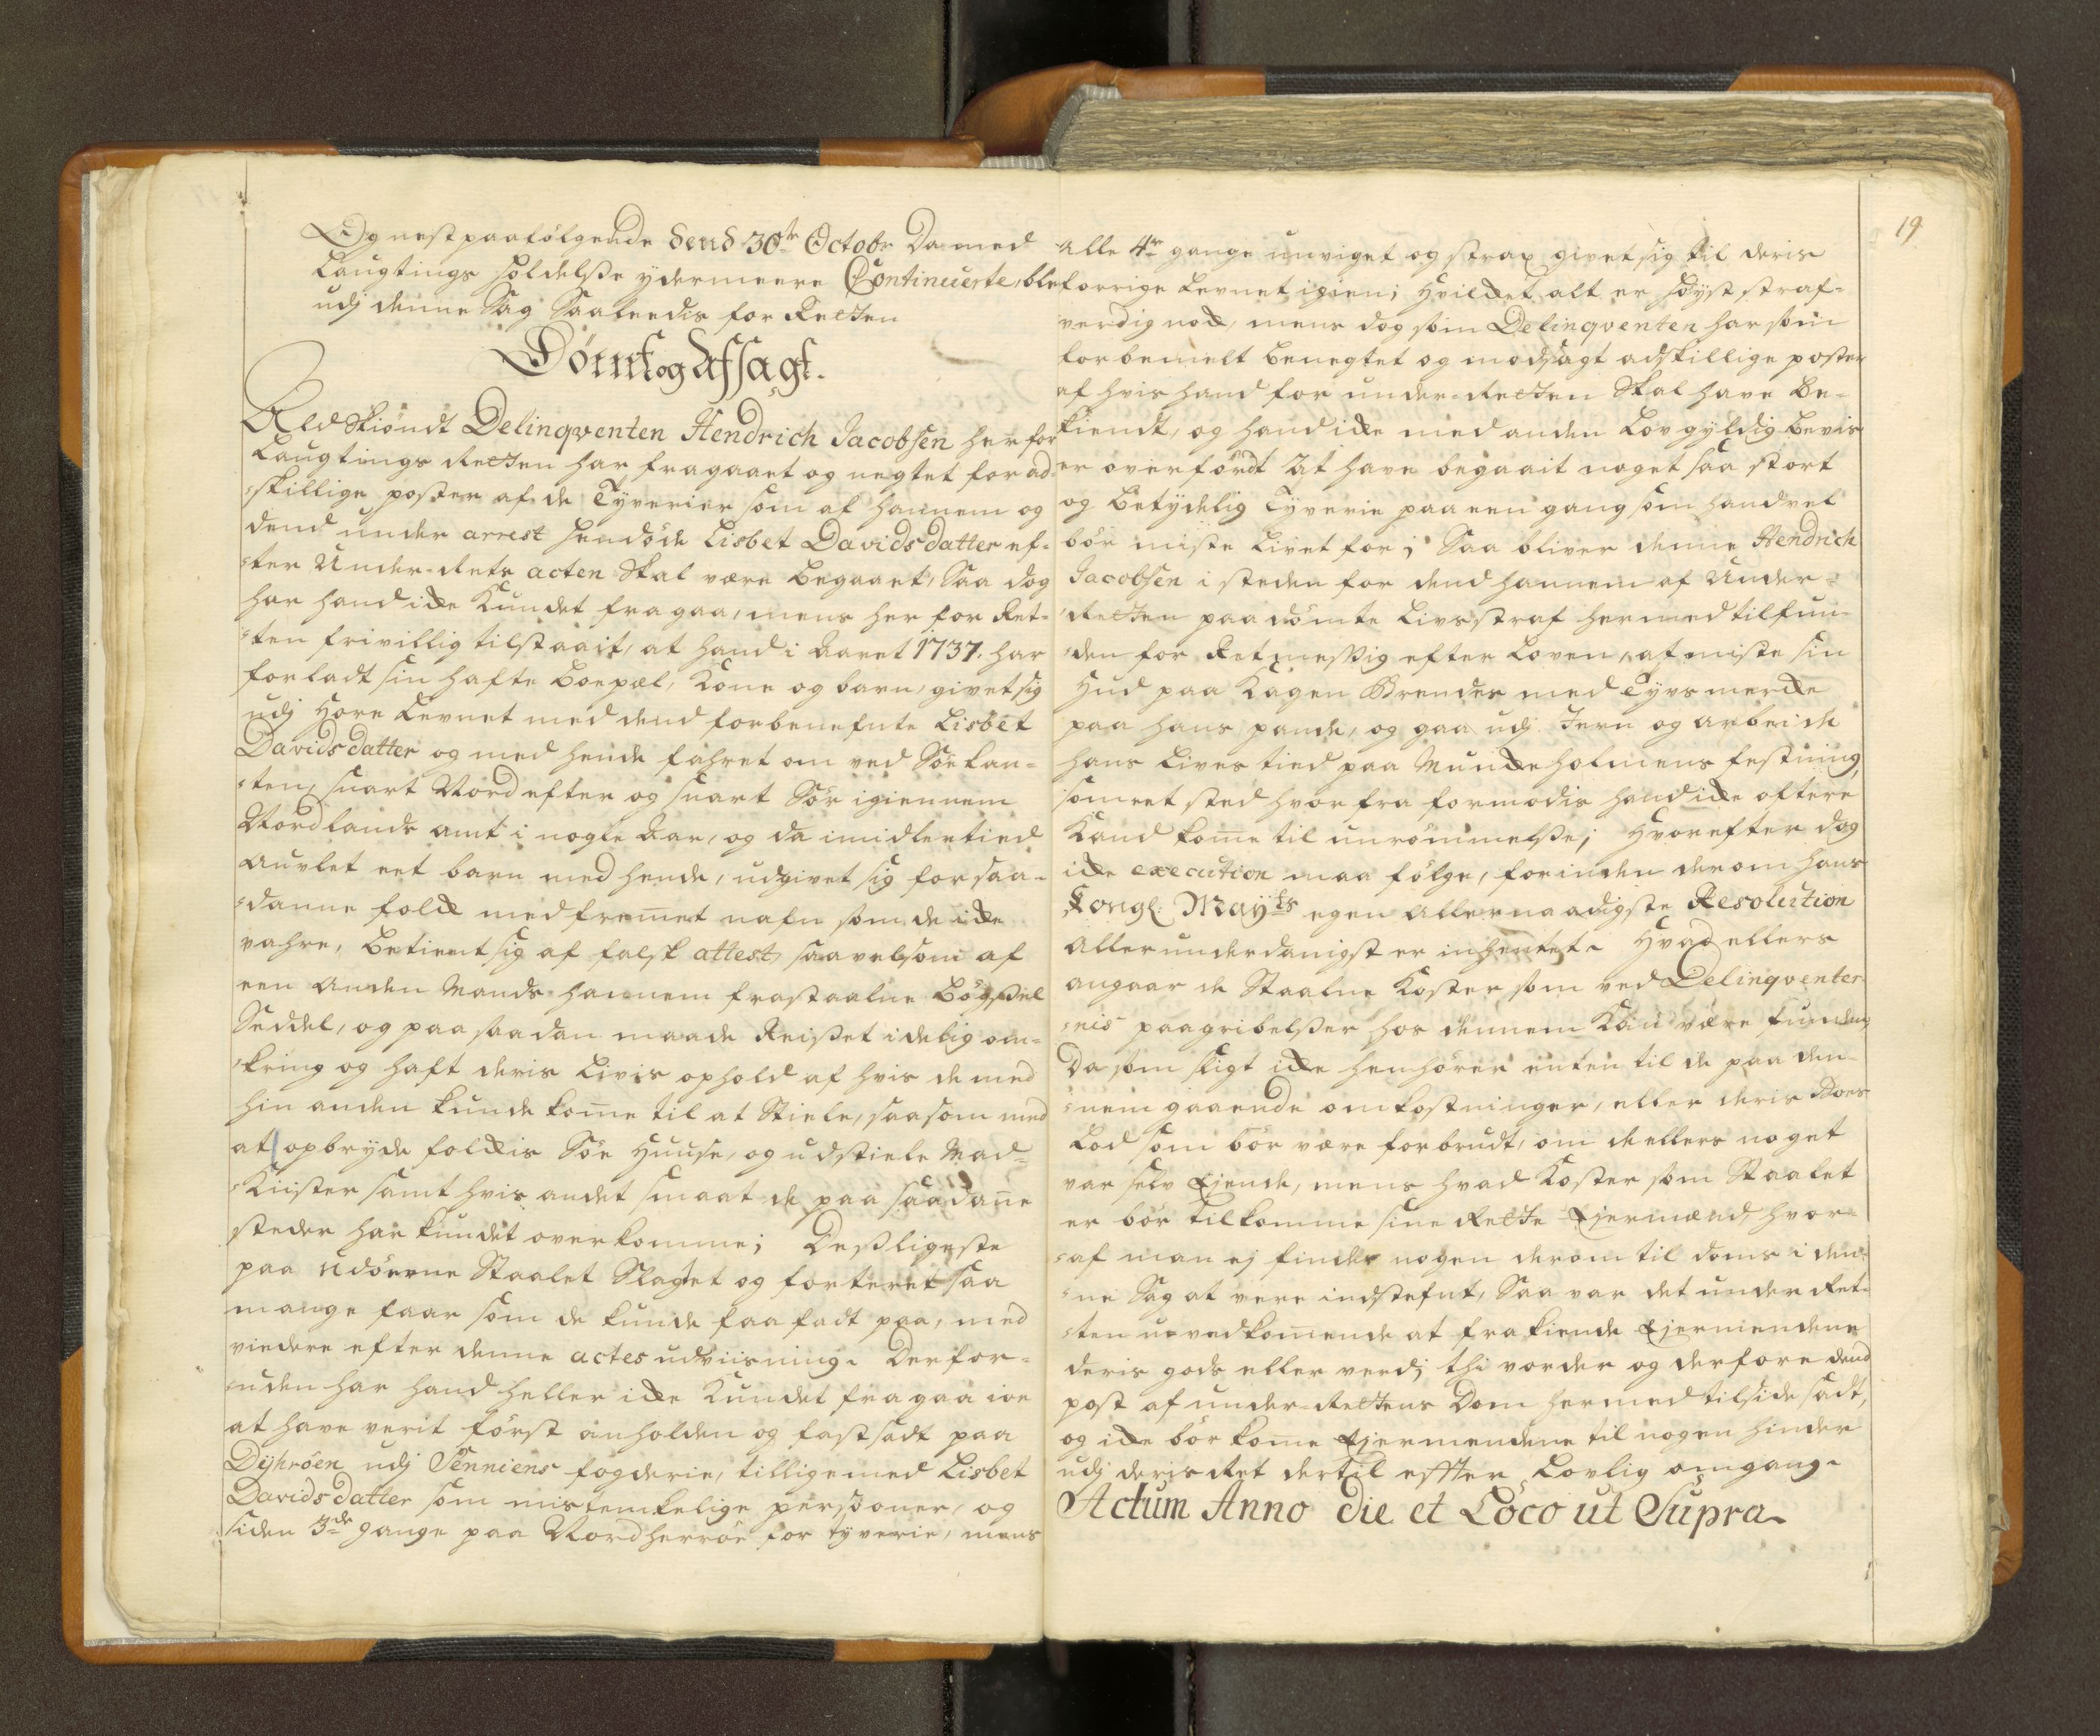 Og nest paafölgende dend 30te Octobr Da med
Laugtings holdelße ydermeere Continuerte, blef
udj denne Sag Saaleedis for Retten
Dömt og Afsagt.
Ald Skiöndt Delinqventen Hendrich Jacobsen her for
Laugtings Retten har fragaaet og negtet for ad-
-skillige poster af de Tyverier som af hannem og
dend under arrest hendöde Lisbet Davids datter ef-
-ter Under-Rets acten Skal være begaaet, Saa dog
har hand icke Kundet fragaa, mens her for Ret-
-ten frivillig tilstaait, at hand i Aaret 1737. har
forladt sin hafte boepæl, Kone og barn, givet sig
udj Hore Levnet med dend forbenefnte Lisbet
Davids datter og med hende fahret om ved Söe kan-
-ten, snart Nord efter og snart Sör igiennem
Nordlands amt i nogle Aar, og da imidlertied
auvlet eet barn med hende, udgivet sig for saa-
-danne folck med fremet nafn som de icke
vahre, betient sig af falsk attest, saavelsom af
een anden Mands hannem frastaalne Bögsel
Seddel, og paa saadan maade Reißet idelig om-
-kring og haft deris Livis ophold af hvis de med
hin anden kunde kome til at Stiele, saasom med
at opbryde folckis Söe Huuse, og udstiele Mad-
-Kiister samt hvis andet smaat de paa saadane
steder har kundet overkomme; Desligeste
paa Udöerne Staalet Slagtet og forteret saa
mange faar som de kunde faa fadt paa, med
viedere efter denne actes udviisning. Derfor-
-uden har hand heller icke Kundet fragaa ioe
at have verit först anholden og fastsadt paa
Dyhröen udj Senniens fogderie, tilligemed Lisbet
Davids datter som mistenkelige personer, og
siden 3de gange paa Nordherröe for tyverie, mens
19
Alle 4re gange unviget og strax givet sig til deris
forrige Levnet igien; Hvilcket alt er höyst straf-
verdig nock, mens dog som Delinqventen har som
forbemelt benegtet og modsagt adskillige poster
af hvis hand for under-Retten Skal have be-
kiendt, og hand icke med anden Lovgyldig bevis
er overfördt At have begaait noget saa stort
og betydelig Tyverie paa een gang som hand vel
bör miste Livet for; Saa bliver denne Hendrich
Jacobsen i steden for dend hannem af Under-
-Retten paadömte Livsstraf hermed tilfun-
-den for Retmeßig efter Loven, at miste sin
Hud paa Kagen Brendes med Tyvs mercke
paa hans pande, og gaa udj Jern og arbeide
hans Lives tied paa Munckeholmens festning,
som eet sted hvor fra formodis hand icke oftere
Kand kome til unrömmelße; Hvorefter dog
icke execution maa fölge, forinden derom hans
Kongl. Mayts egen allernaadigste Resolution
allerunderdanigst er inhentet. Hvad ellers
angaar de Staalne Koster som ved Delinqventer-
-nis paagribelßer hos dennem Kan være funden,
Da som sligt icke henhörer enten til de paa den-
-nem gaaende omkostninger, eller deris Boes
Lod som bör være forbrudt, om de ellers noget
var selv Ejende, mens hvad Koster som Staalet
er bör tilkomme sine Rette Ejermænd, hvor-
-af man ej finder nogen derom til doms i den-
-ne Sag at vere indstefnt, Saa var det under Ret-
-ten uvedkomende at frakiende Ejermendene
deris gods eller verd; thi vorder og derfore dend
post af under-Rettens Dom hermed tilside sadt,
og icke bör kome Ejermendene til nogen hinder
udj deris Ret dertil effter Lovlig omgang.
Actum Anno die et Loco ut Supra.